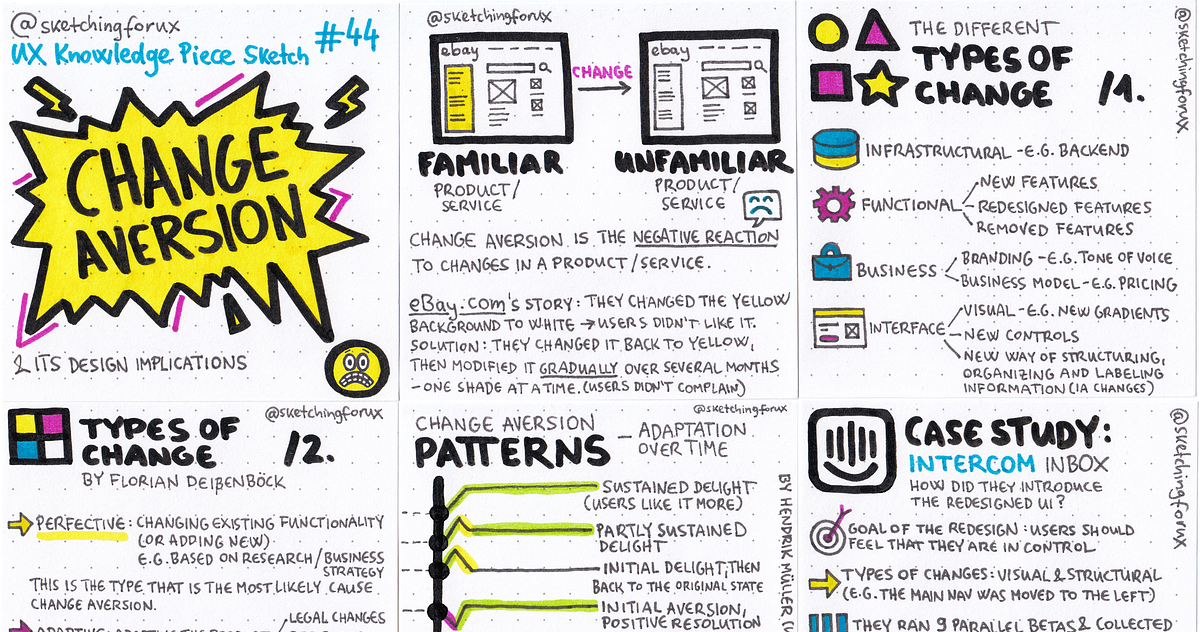 @sketchingforux
#44
UX Knowledge Piece Sketch
CHANGE
AVERSION
& ITS DESIGN IMPLICATIONS
@sketchingforux
ebay
CHANGE
ebay
FAMILIAR
PRODUCT/
SERVICE
UNFAMILIAR
PRODUCT/
SERVICE
CHANGE AVERSION IS THE NEGATIVE REACTION
TO CHANGES IN A PRODUCT/SERVICE.
eBay.com's STORY: THEY CHANGED THE YELLOW
BACKGROUND TO WHITE → USERS DIDN'T LIKE IT.
SOLUTION: THEY CHANGED IT BACK TO YELLOW,
THEN MODIFIED IT GRADUALLY OVER SEVERAL MONTHS
- ONE SHADE AT A TIME. (USERS DIDN'T COMPLAIN)
@sketchingforux
THE DIFFERENT
TYPES OF
CHANGE /1.
INFRASTRUCTURAL - E.G. BACKEND
FUNCTIONAL
NEW FEATURES
REDESIGNED FEATURES
REMOVED FEATURES
BUSINESS
BRANDING - E.G. TONE OF VOICE
BUSINESS MODEL - E.G. PRICING
INTERFACE
VISUAL - E.G. NEW GRADIENTS
NEW CONTROLS
NEW WAY OF STRUCTURING,
ORGANIZING AND LABELING
INFORMATION (IA CHANGES)
@sketchingforux
TYPES OF
CHANGE /2.
BY FLORIAN DEIßENBÖCK
PERFECTIVE: CHANGING EXISTING FUNCTIONALITY
(OR ADDING NEW)
E.G. BASED ON RESEARCH/BUSINESS
STRATEGY
THIS IS THE TYPE THAT IS THE MOST LIKELY CAUSE
CHANGE AVERSION.
LEGAL CHANGES
@sketchingforux
CHANGE AVERSION
PATTERNS
- ADAPTATION
OVER TIME
SUSTAINED DELIGHT
(USERS LIKE IT MORE)
PARTLY SUSTAINED
DELIGHT
INITIAL DELIGHT, THEN
BACK TO THE ORIGINAL STATE
INITIAL AVERSION,
POSITIVE RESOLUTION
BY HENDRIK MÜLLER
@sketchingforux
CASE STUDY:
INTERCOM INBOX
HOW DID THEY INTRODUCE
THE REDESIGNED UI?
GOAL OF THE REDESIGN: USERS SHOULD
FEEL THAT THEY ARE IN CONTROL
TYPES OF CHANGES: VISUAL & STRUCTURAL
(E.G. THE MAIN NAV WAS MOVED TO THE LEFT)
THEY RAN 9 PARALLEL BETAS & COLLECTED